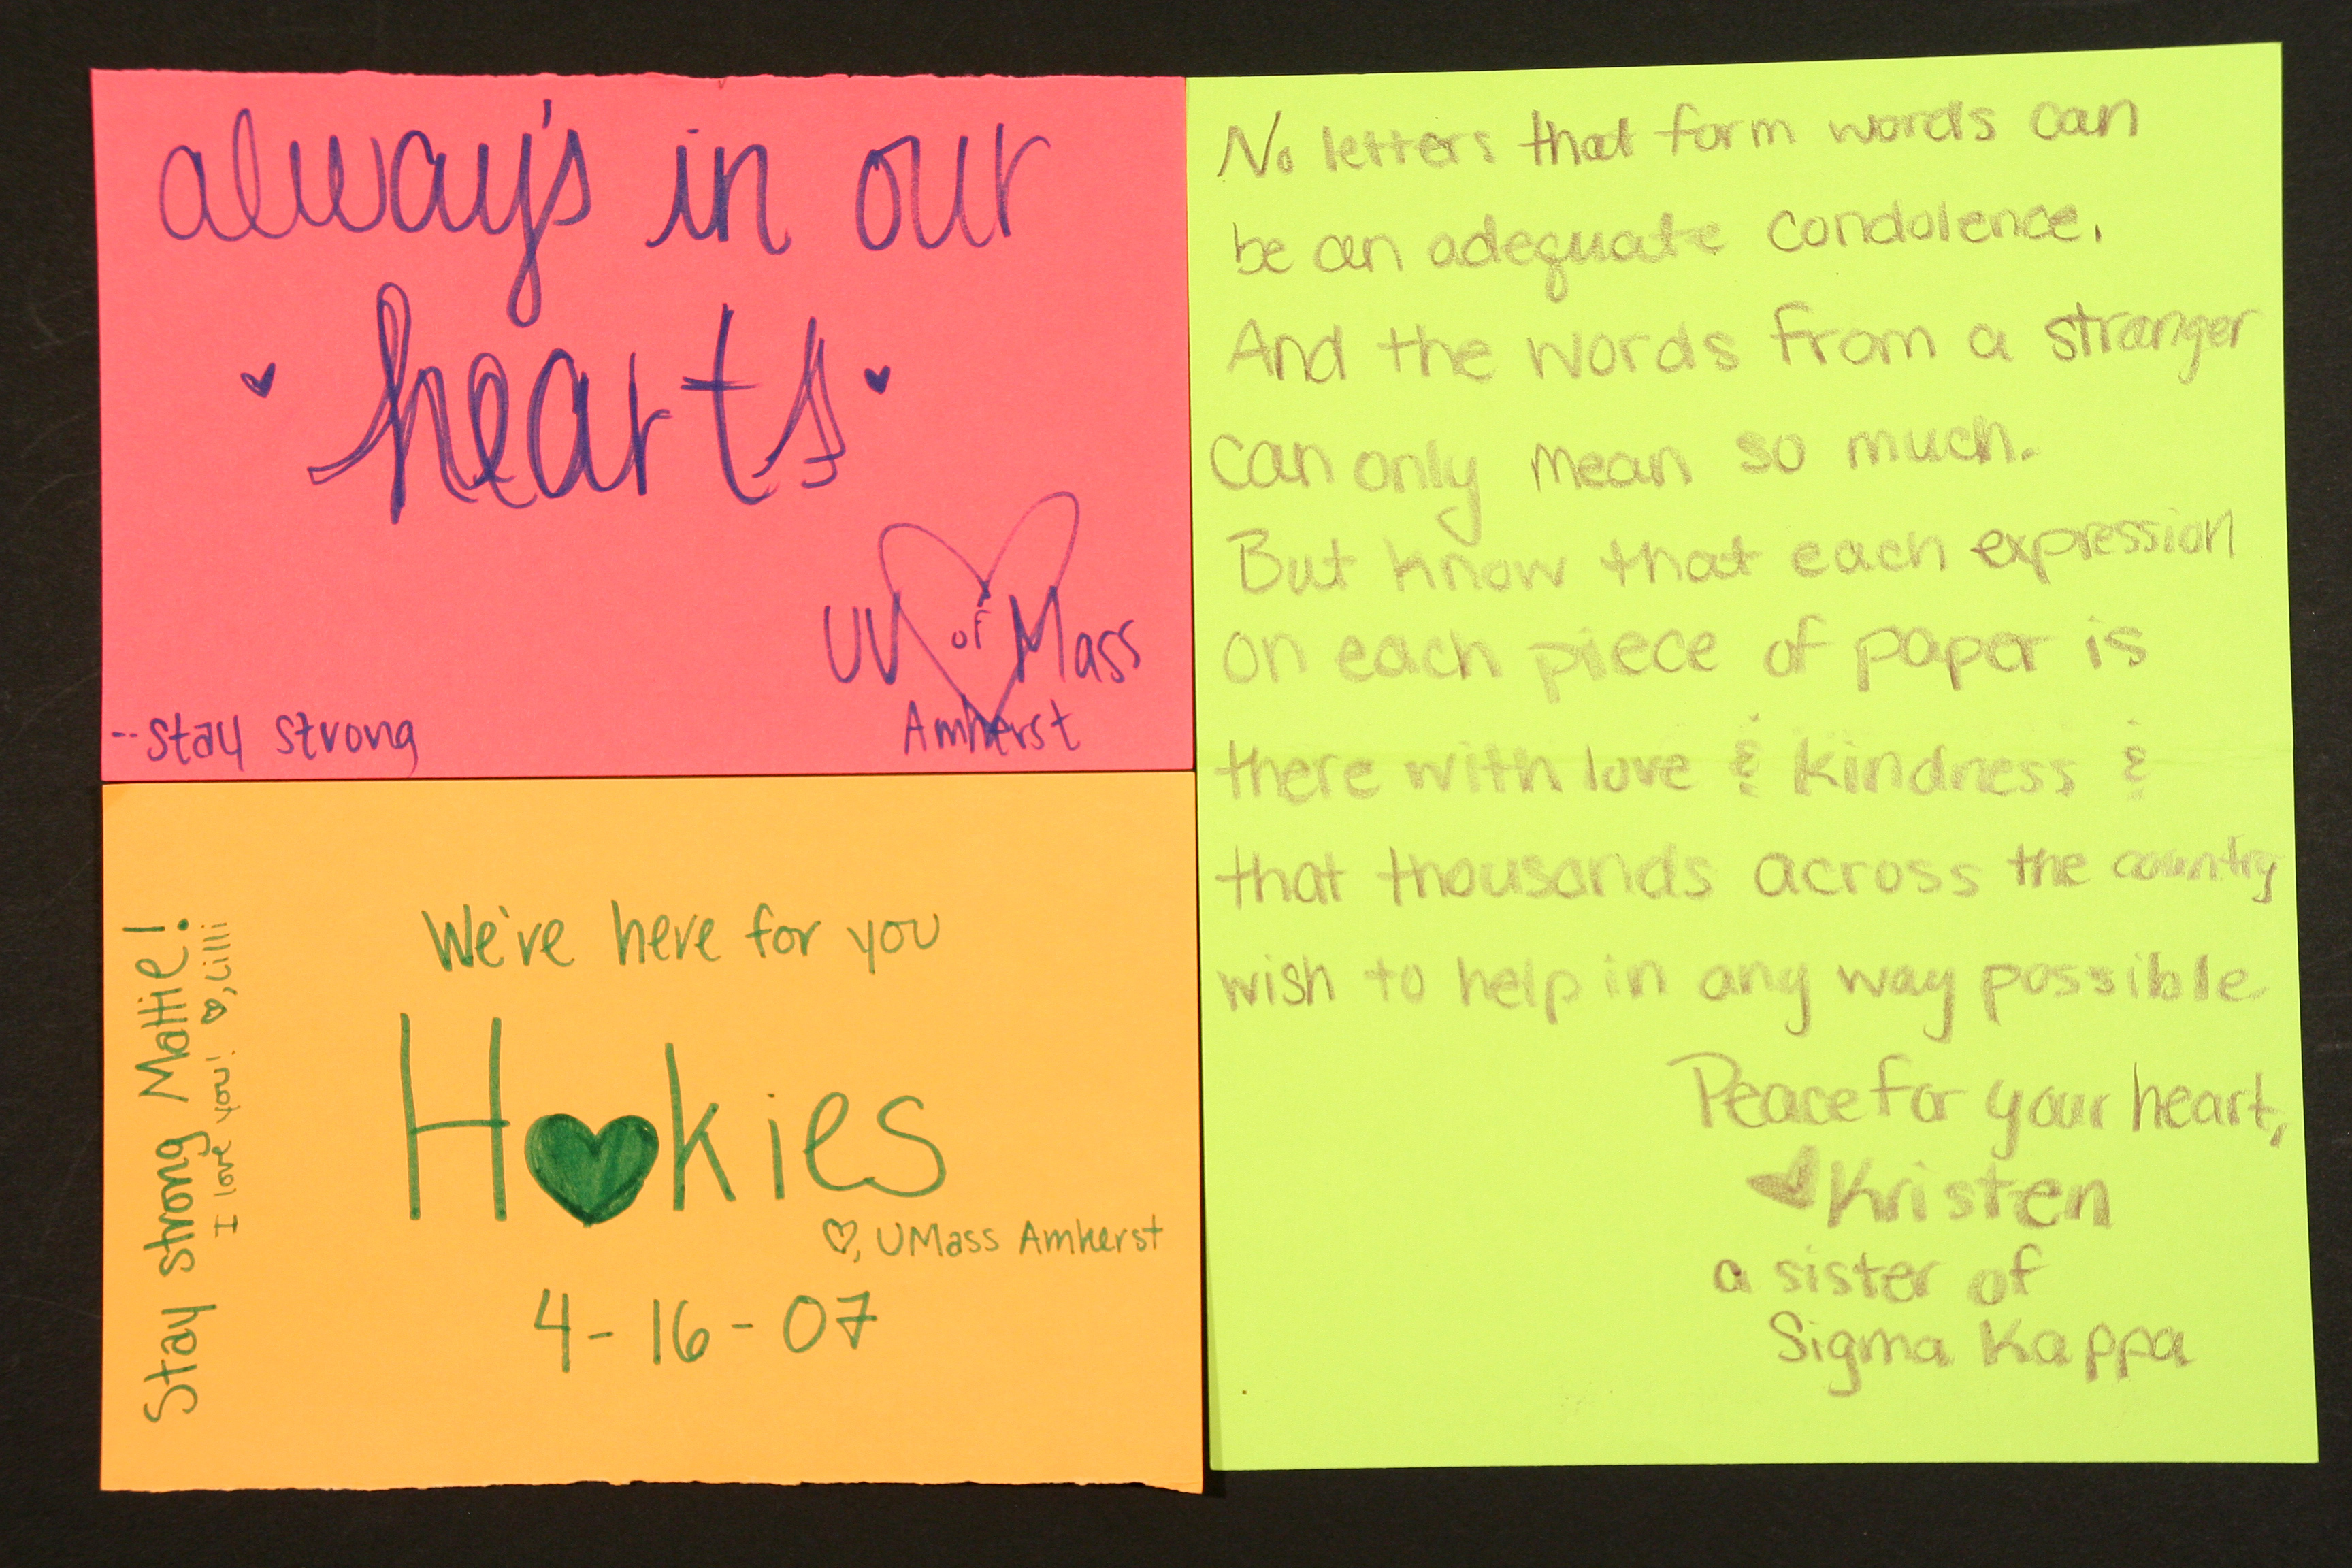 always in our
hearts
UV of Mass
Amherst
--stay strong
We've here for you
Hookies
♡, UMass Amherst
4-16-07
Stay strong Mattie!
I love you! ♡, Lilli
No letters that form words can
be an adequate condolence.
And the words from a stranger
can only mean so much.
But know that each expression
on each piece of paper is
there with love & kindness &
that thousands across the country
wish to help in any way possible
Peace for your heart,
♥ Kristen
a sister of
Sigma Kappa